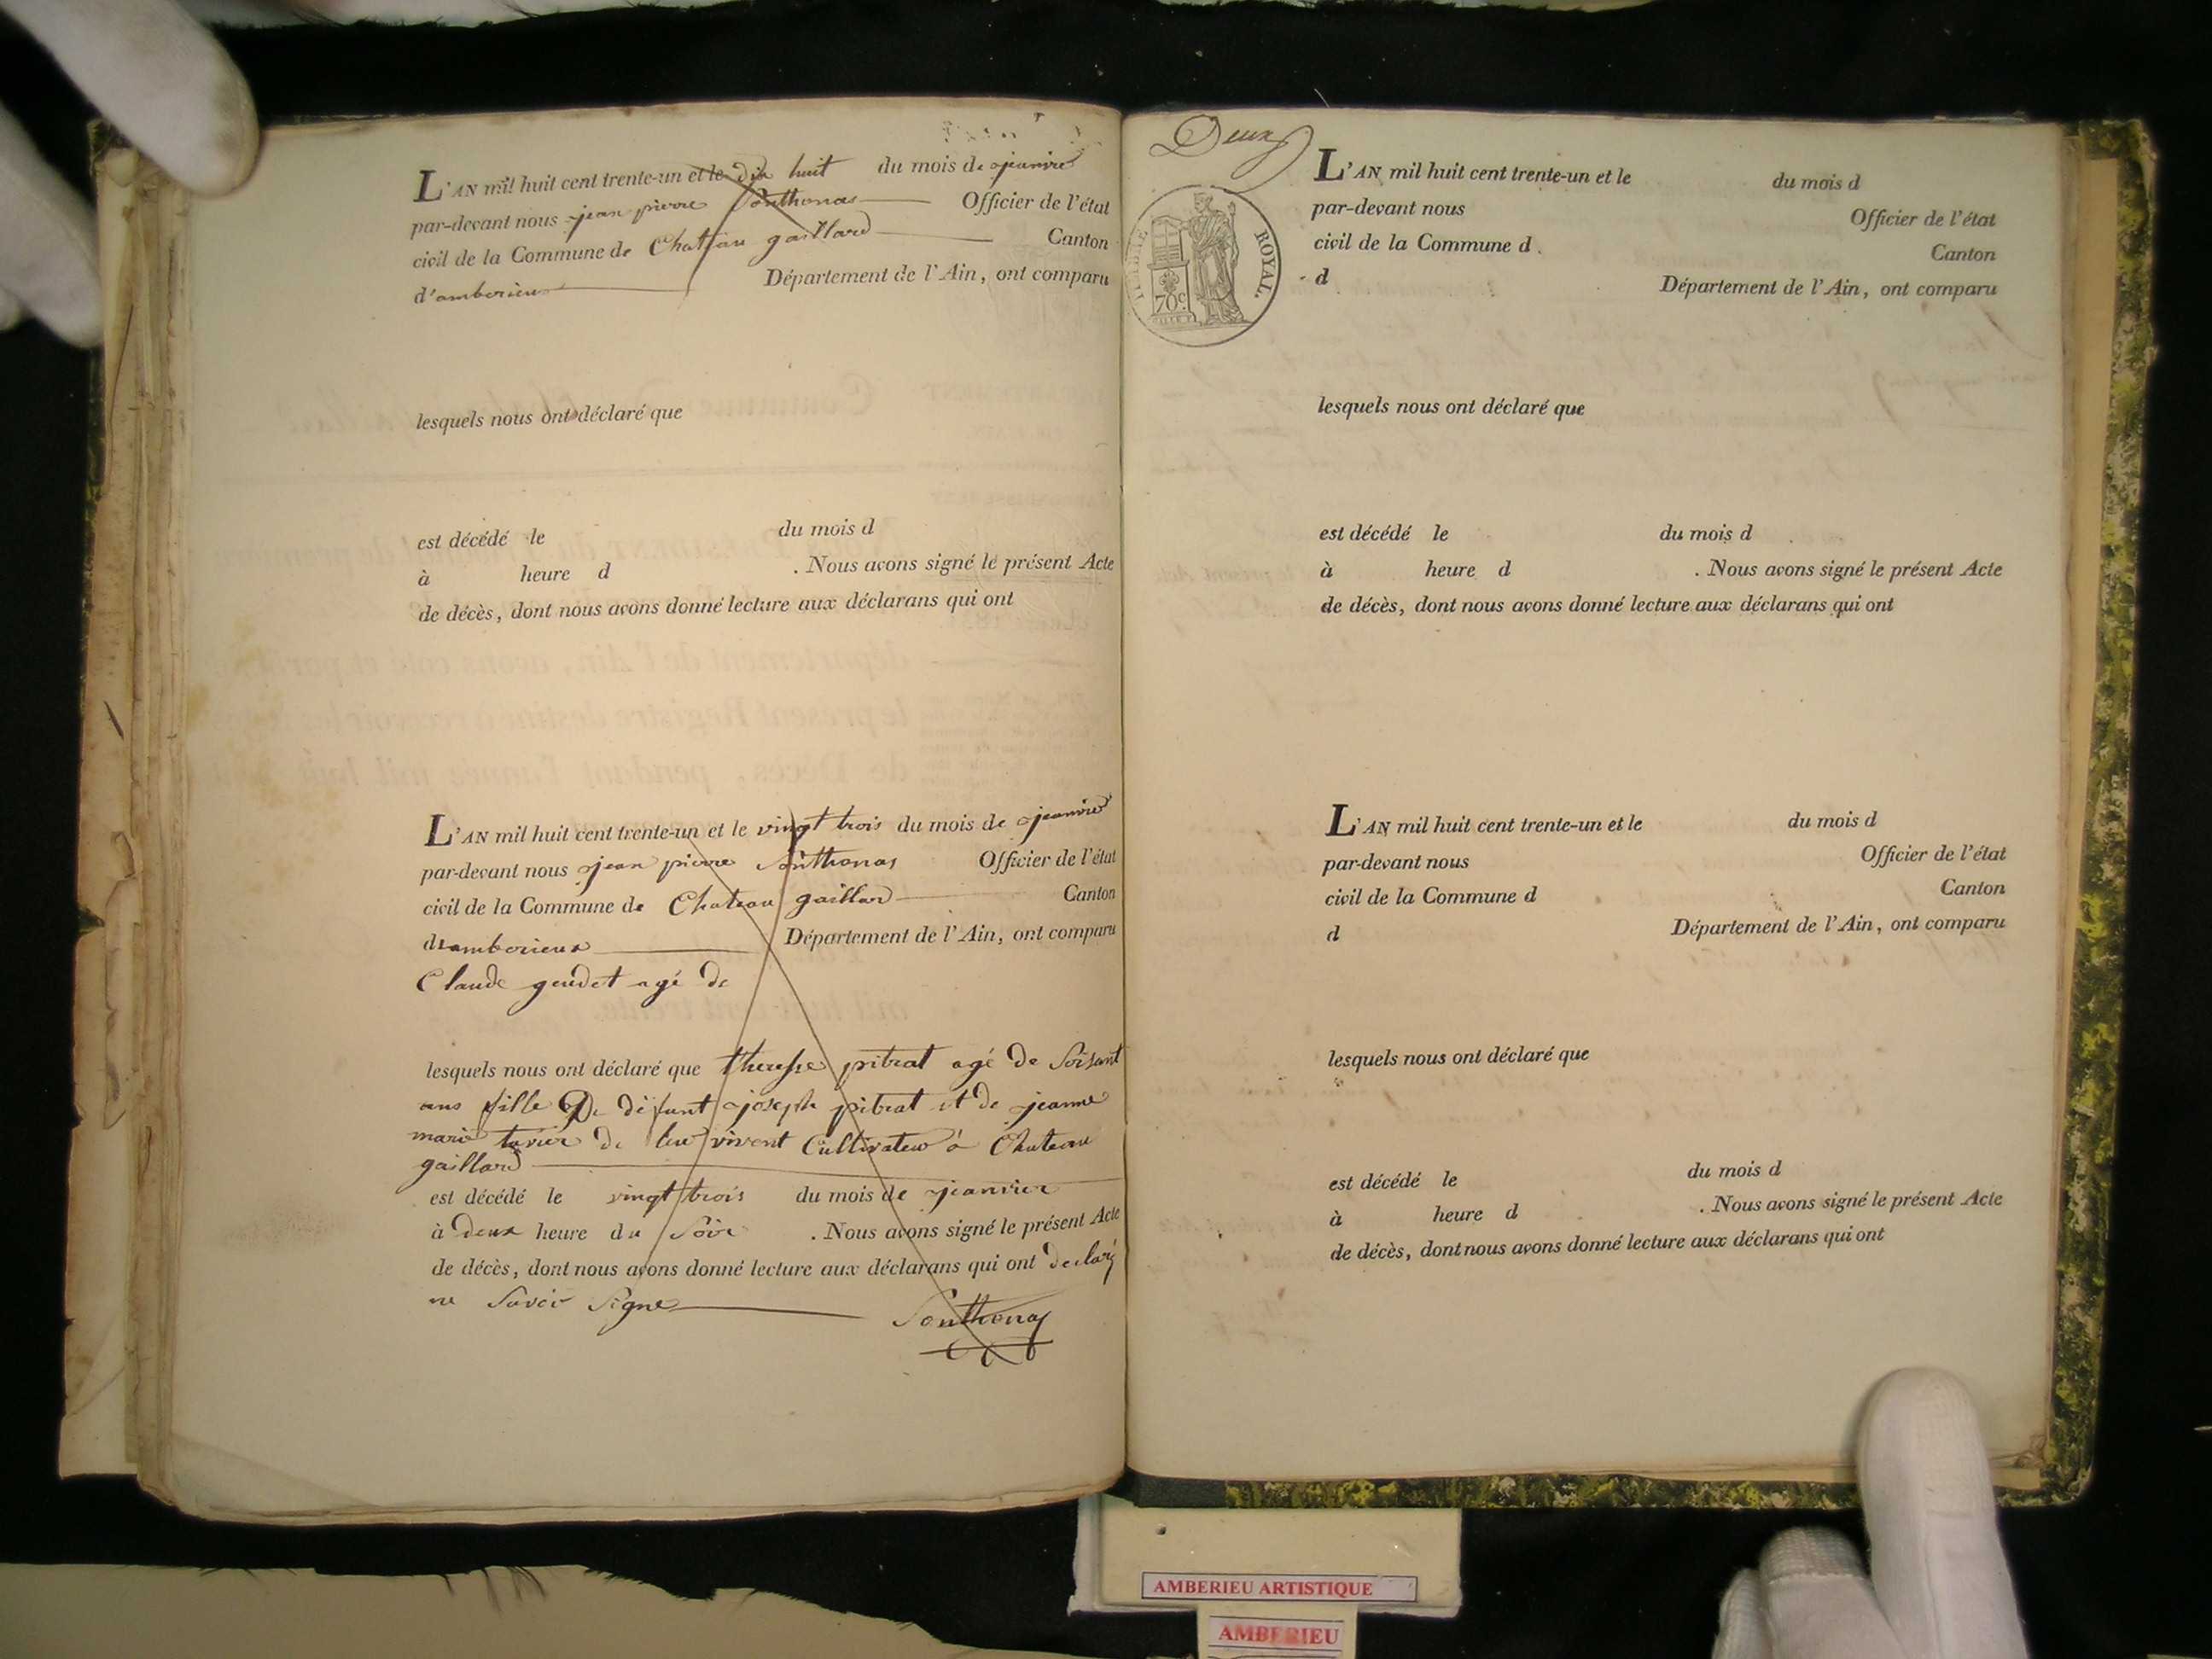 L'AN mil huit cent trente-un et le dix huit du mois de jeanvier
par-devant nous jean pierre Sonthonas Officier de l'état
civil de la Commune de Chateau gaillard Canton
d'amberieux Département de l'Ain, ont comparu
lesquels nous ont déclaré que
est décédé le du mois d
à heure d . Nous avons signé le présent Acte
de décès, dont nous avons donné lecture aux déclarans qui ont
L'AN mil huit cent trente-un et le vingt trois du mois de jeanvier
par-devant nous jean pierre Sonthonas Officier de l'état
civil de la Commune de Chateau gaillar Canton
d'amberieux Département de l'Ain, ont comparu
Claude geudet agé de
lesquels nous ont déclaré que pitrat agé de Soisant
ans fille De difunt joseph pitrat et de jeanne
marie de vivent Cultivateur à Chateau
gaillard
est décédé le vingt trois du mois de jeanvier
à deux heure du Soir . Nous avons signé le présent Acte
de décès, dont nous avons donné lecture aux déclarans qui ont declaré
ne Savoir Signe Sonthonas
Deux
ROYAL.
70c.
L'AN mil huit cent trente-un et le du mois d
par-devant nous Officier de l'état
civil de la Commune d Canton
d Département de l'Ain, ont comparu
lesquels nous ont déclaré que
est décédé le du mois d
à heure d . Nous avons signé le présent Acte
de décès, dont nous avons donné lecture aux déclarans qui ont
L'AN mil huit cent trente-un et le du mois d
par-devant nous Officier de l'état
civil de la Commune d Canton
d Département de l'Ain, ont comparu
lesquels nous ont déclaré que
est décédé le du mois d
à heure d . Nous avons signé le présent Acte
de décès, dont nous avons donné lecture aux déclarans qui ont
AMBERIEU ARTISTIQUE
AMBERIEU